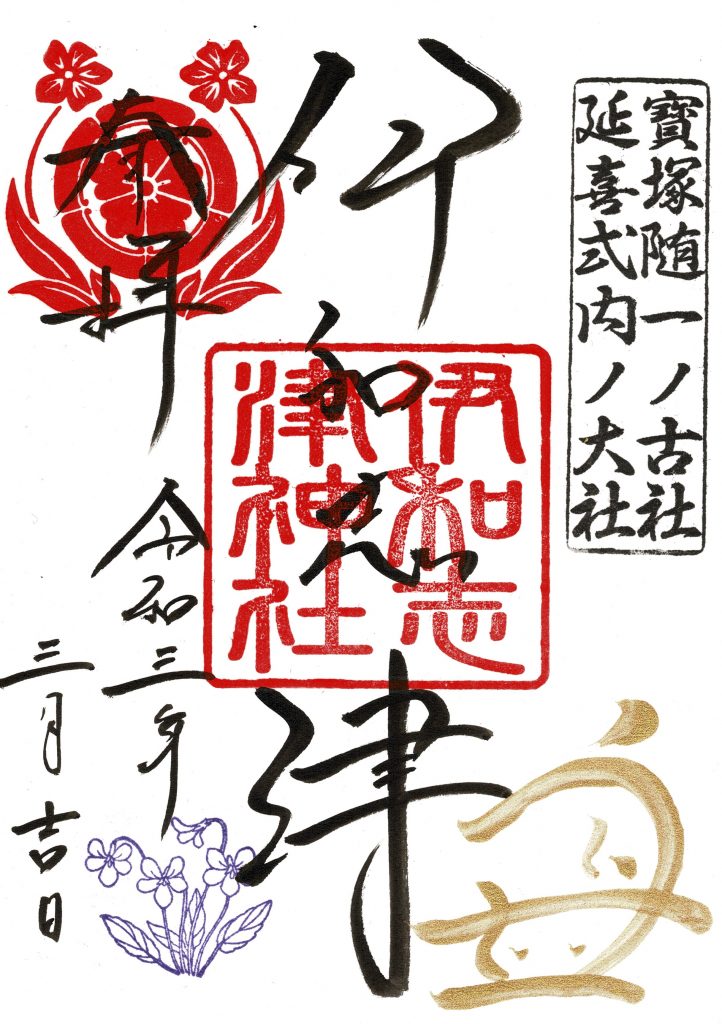 寶塚随一ノ古社
延喜式内ノ大社
伊和志津
伊和志
津神社
奉拝
令和三年
三月吉日